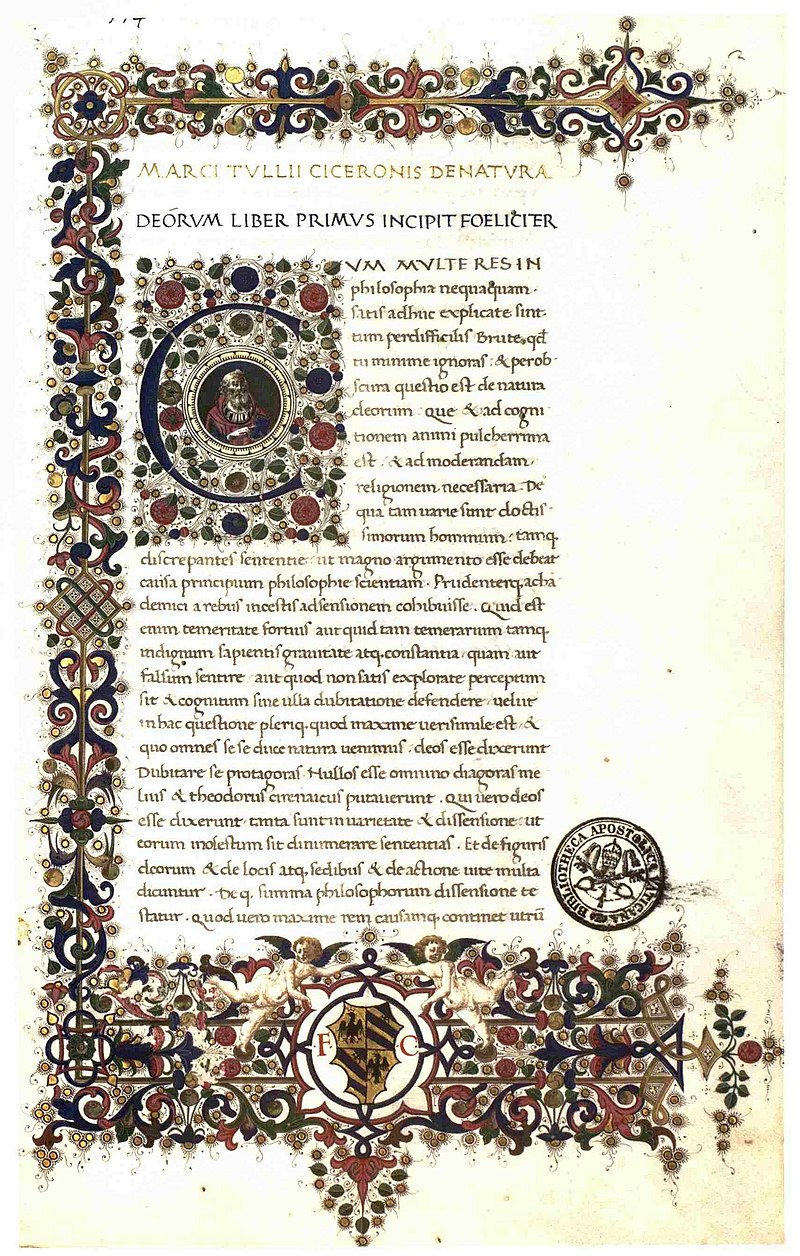 MARCI TVLLII CICERONIS DE NATVRA
DEORVM LIBER PRIMVS INCIPIT FOELICITER
CVM MVLTE RES IN
philosophia nequaquam.
satis adhuc explicate sint.
tum perdifficilis Brute, qđ
tu minime ignoras: & perob
scura questio est de natura
deorum. Que & ad cogni
tionem animi pulcherrima
est. & ad moderandam.
religionem necessaria. De
qua tam varie sunt doctis
simorum hominum: tamq.
discrepantes sententie: ut magno argumento esse debeat
causa principium philosophie scientiam. Prudenterq. acha
demici a rebus incestis adsensionem cohibuisse. Quid est
enim temeritate fortius aut quid tam temerarium tamq.
indignum sapientis gravitate atq. constantia. quam aut
falsum sentire. aut quod non satis explorate perceptum
sit & cognitum sine ulla dubitatione defendere. velut
in hac questione pleriq. quod maxime verisimile est. &
quo omnes se se duce natura venimus. deos esse dixerunt
Dubitare se protagoras. Nullos esse omnino diagoras me
lius & theodorus cirenaicus putaverunt. Qui vero deos
esse dixerunt. tanta sunt in varietate & dissensione. ut
eorum molestum sit dinumerare sententias. Et de figuris
deorum & de locis atq. sedibus & de actione vite multa
dicuntur. De q. summa philosophorum dissensione te
statur. Quod vero maxime rem causamq. continet utrũ
BIBLIOTHECA APOSTOLICA VATICANA
F C